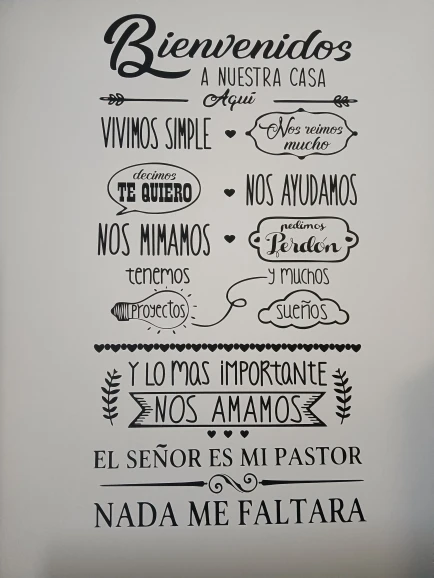 Bienvenidos
A NUESTRA CASA
Aquí
VIVIMOS SIMPLE
Nos reimos
mucho
decimos
TE QUIERO
NOS AYUDAMOS
NOS MIMAMOS
pedimos
Perdón
tenemos
y muchos
proyectos
sueños
Y LO MAS IMPORTANTE
NOS AMAMOS
EL SEÑOR ES MI PASTOR
NADA ME FALTARA